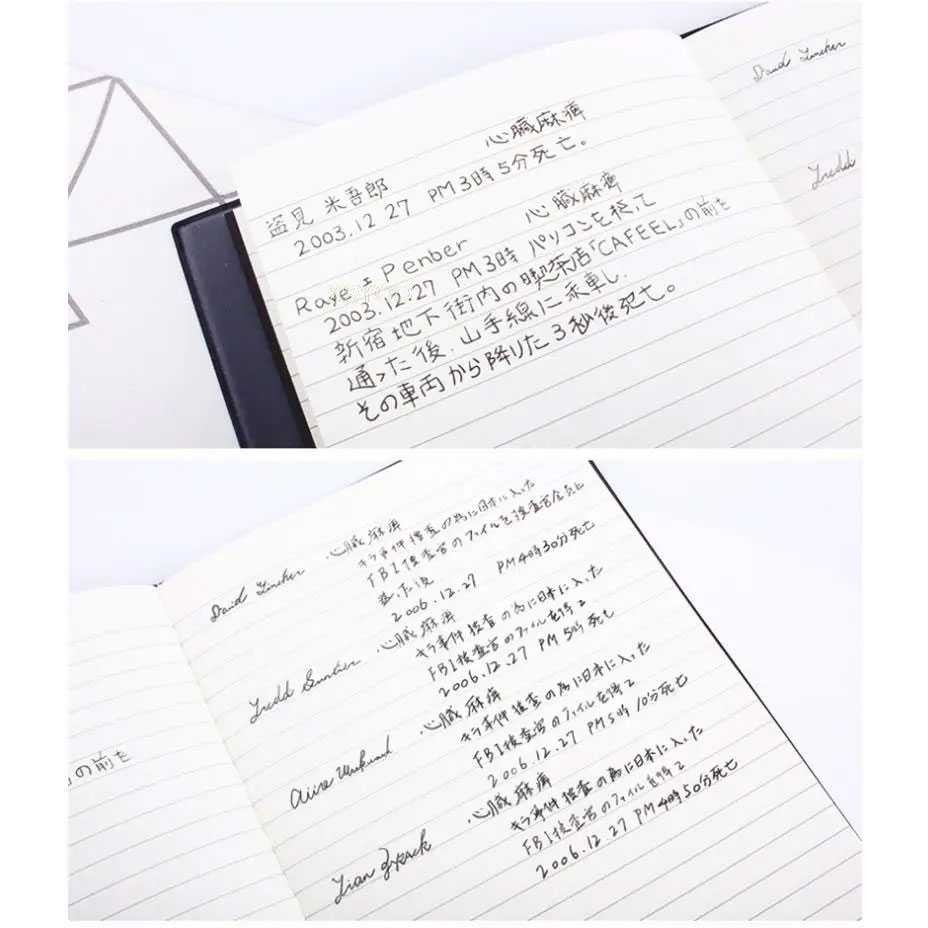 心臓麻痺
盗見 米吾郎
2003.12 27 PM 3時 5分死亡。
心臓麻痺
Raye Penber
2003.12.27 PM 3時 パソコンを
新宿地下街内の喫茶店「CAFEEL」の前を
通った後、山手線に乗車し、
その車両から降りた3秒後死亡。
Daud
の前を
Daud
心臓麻痺
キラ事件捜査の為に日本に入った
FBI捜査官のファイルを捜査官全員に
た後
2006.12.27 PM 4時30分死亡
心臓麻痺
キラ事件捜査の為に日本に入った
FBI捜査官のファイルを得て
2006.12.27 PM 5時 死亡
心臓麻痺
キラ事件捜査の為に日本に入った
FBI捜査官のファイルを得て
2006.12.27 PM 5時 10分死亡
心臓麻痺
キラ事件捜査の為に日本に入った
FBI捜査官のファイルを得て
2006.12.27 PM 4時50分死亡